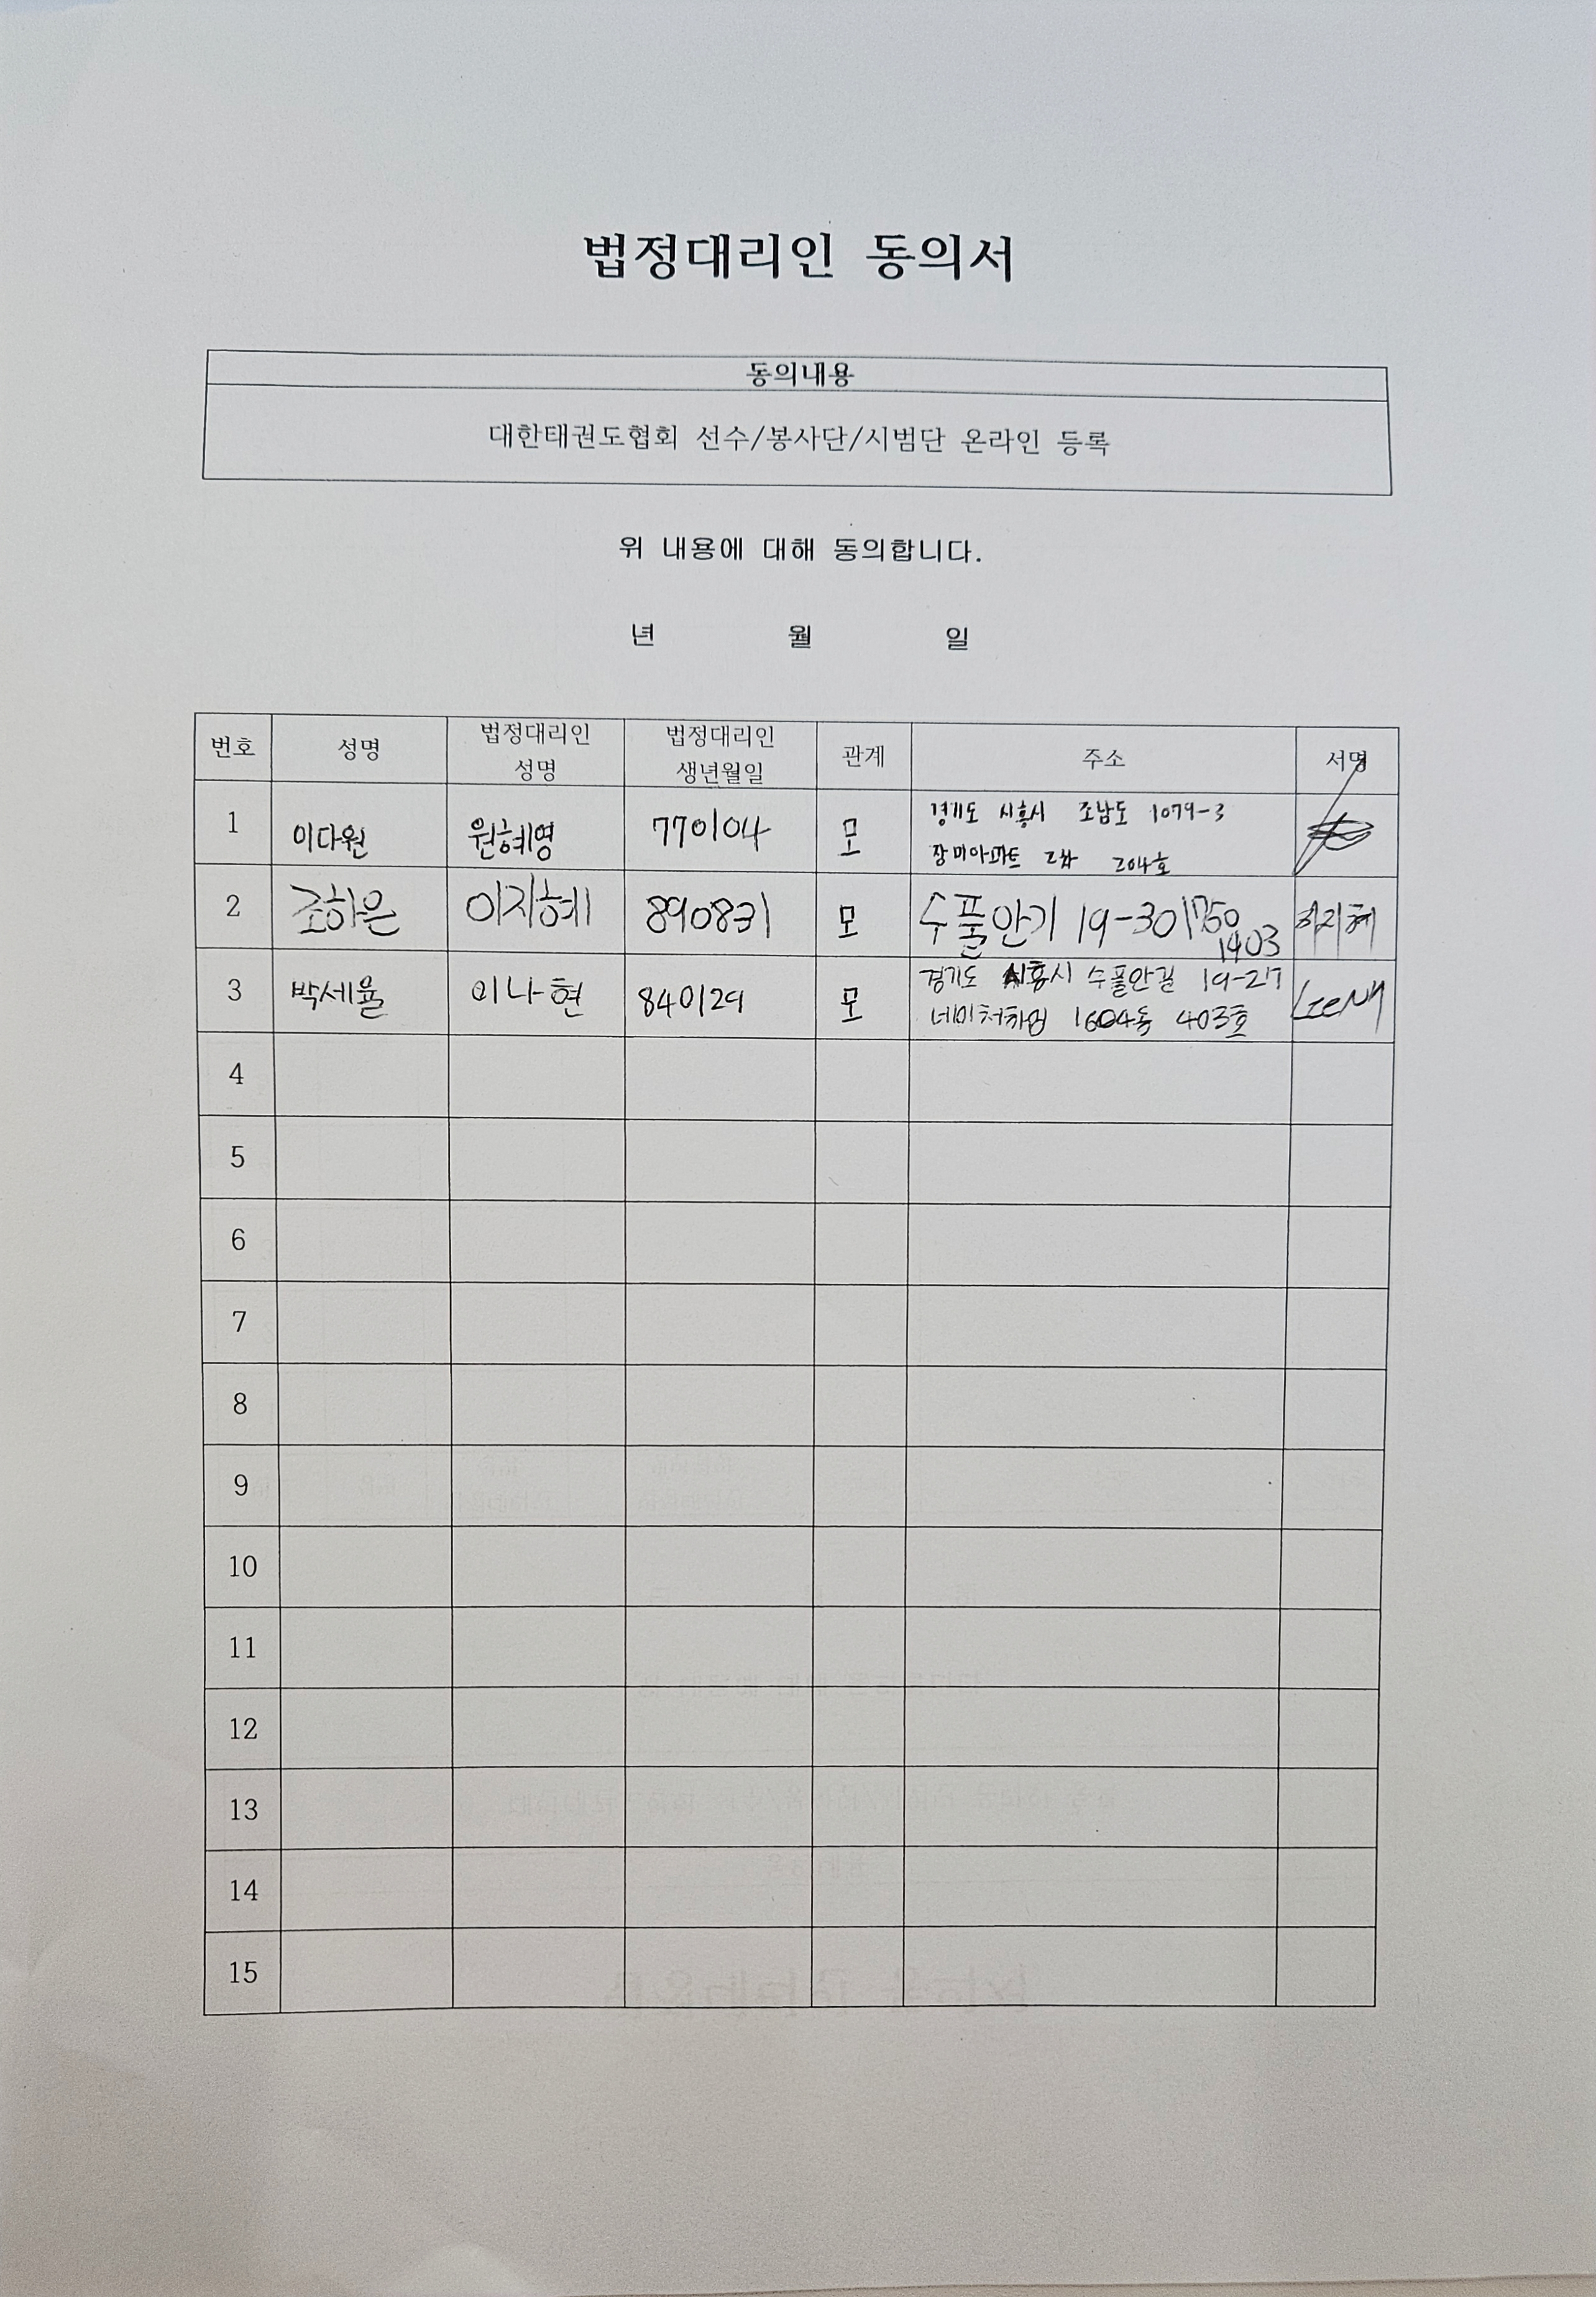 법정대리인 동의서
동의내용
대한태권도협회 선수/봉사단/시범단 온라인 등록
위 내용에 대해 동의합니다.
년 월 일
번호 성명 법정대리인 성명 법정대리인 생년월일 관계 주소 서명
1 이다원 원혜영 770104 모 경기도 시흥시 조남도 1079-3
장미아파트 2차 204호
2 조하은 이지혜 890831 모 수풀안기 19-30 1403 이지혜
3 박세율 이나현 840129 모 경기도 시흥시 수풀안길 19-27
네이처하임 1604동 403호
4
5
6
7
8
9
10
11
12
13
14
15